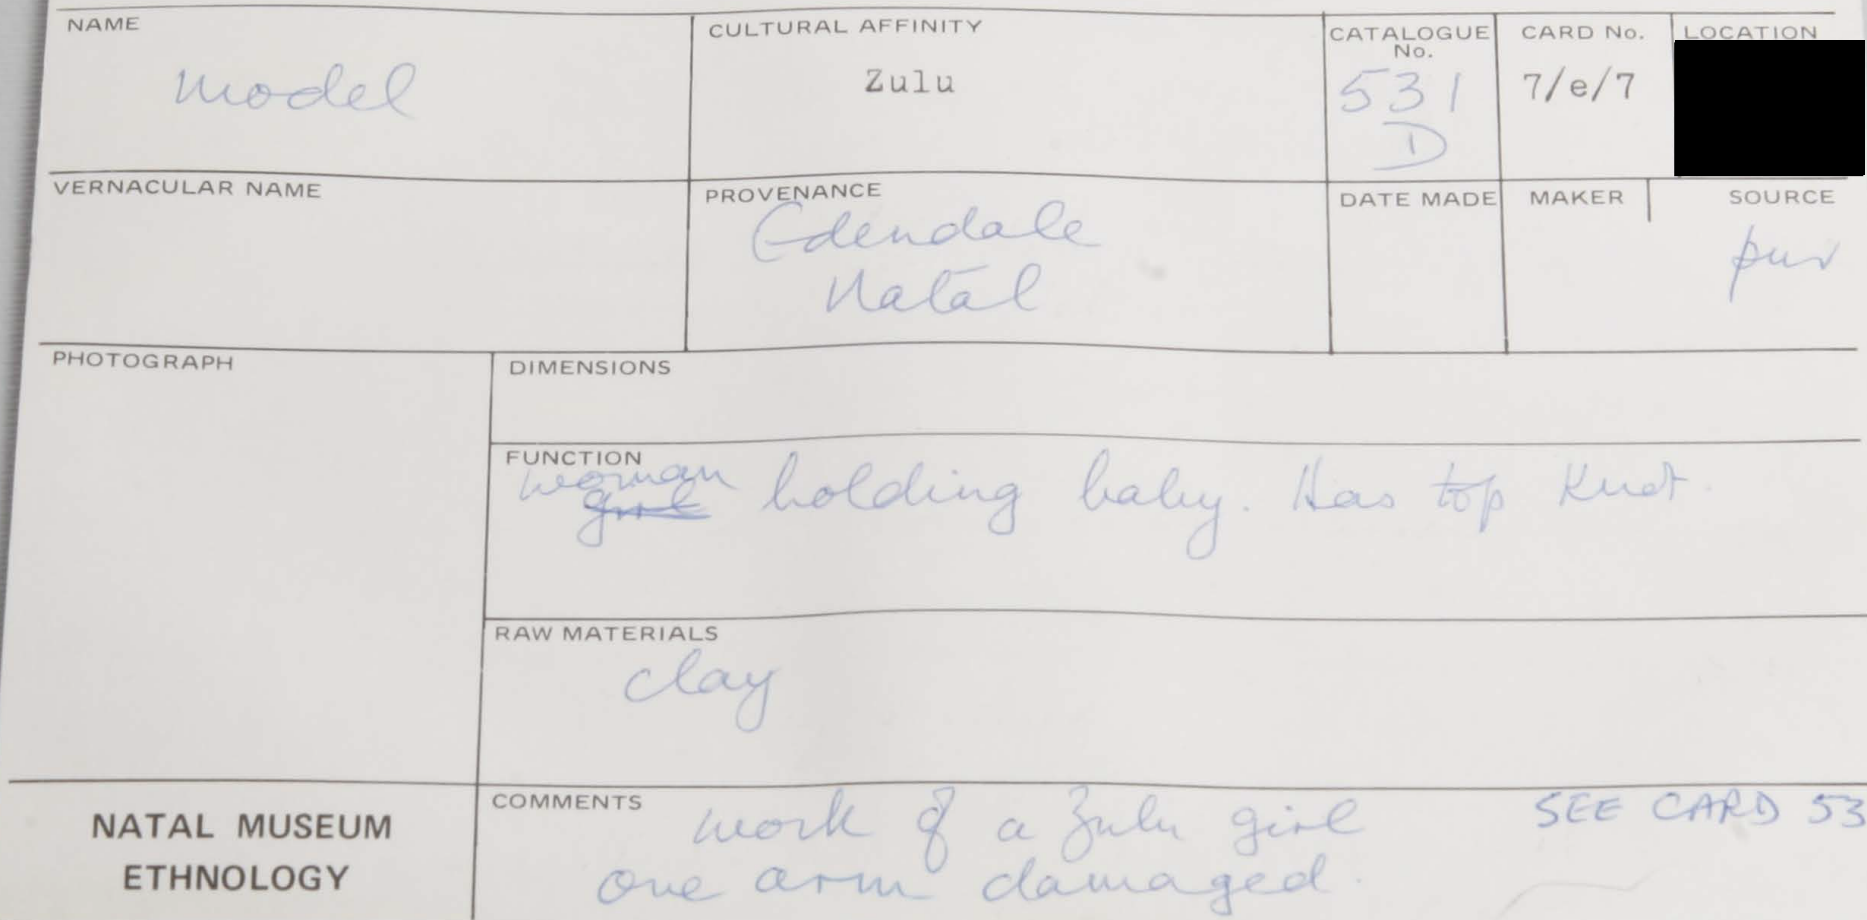 NAME
Model
CULTURAL AFFINITY
Zulu
CATALOGUE
No.
531
D
CARD No.
7/e/7
LOCATION
VERNACULAR NAME
PROVENANCE
Edendale
Natal
DATE MADE
MAKER
SOURCE
pur
PHOTOGRAPH
DIMENSIONS
FUNCTION
woman
girl holding baby. Has top knot.
RAW MATERIALS
clay
NATAL MUSEUM
ETHNOLOGY
COMMENTS
work of a Zulu girl
one arm damaged.
SEE CARD 53